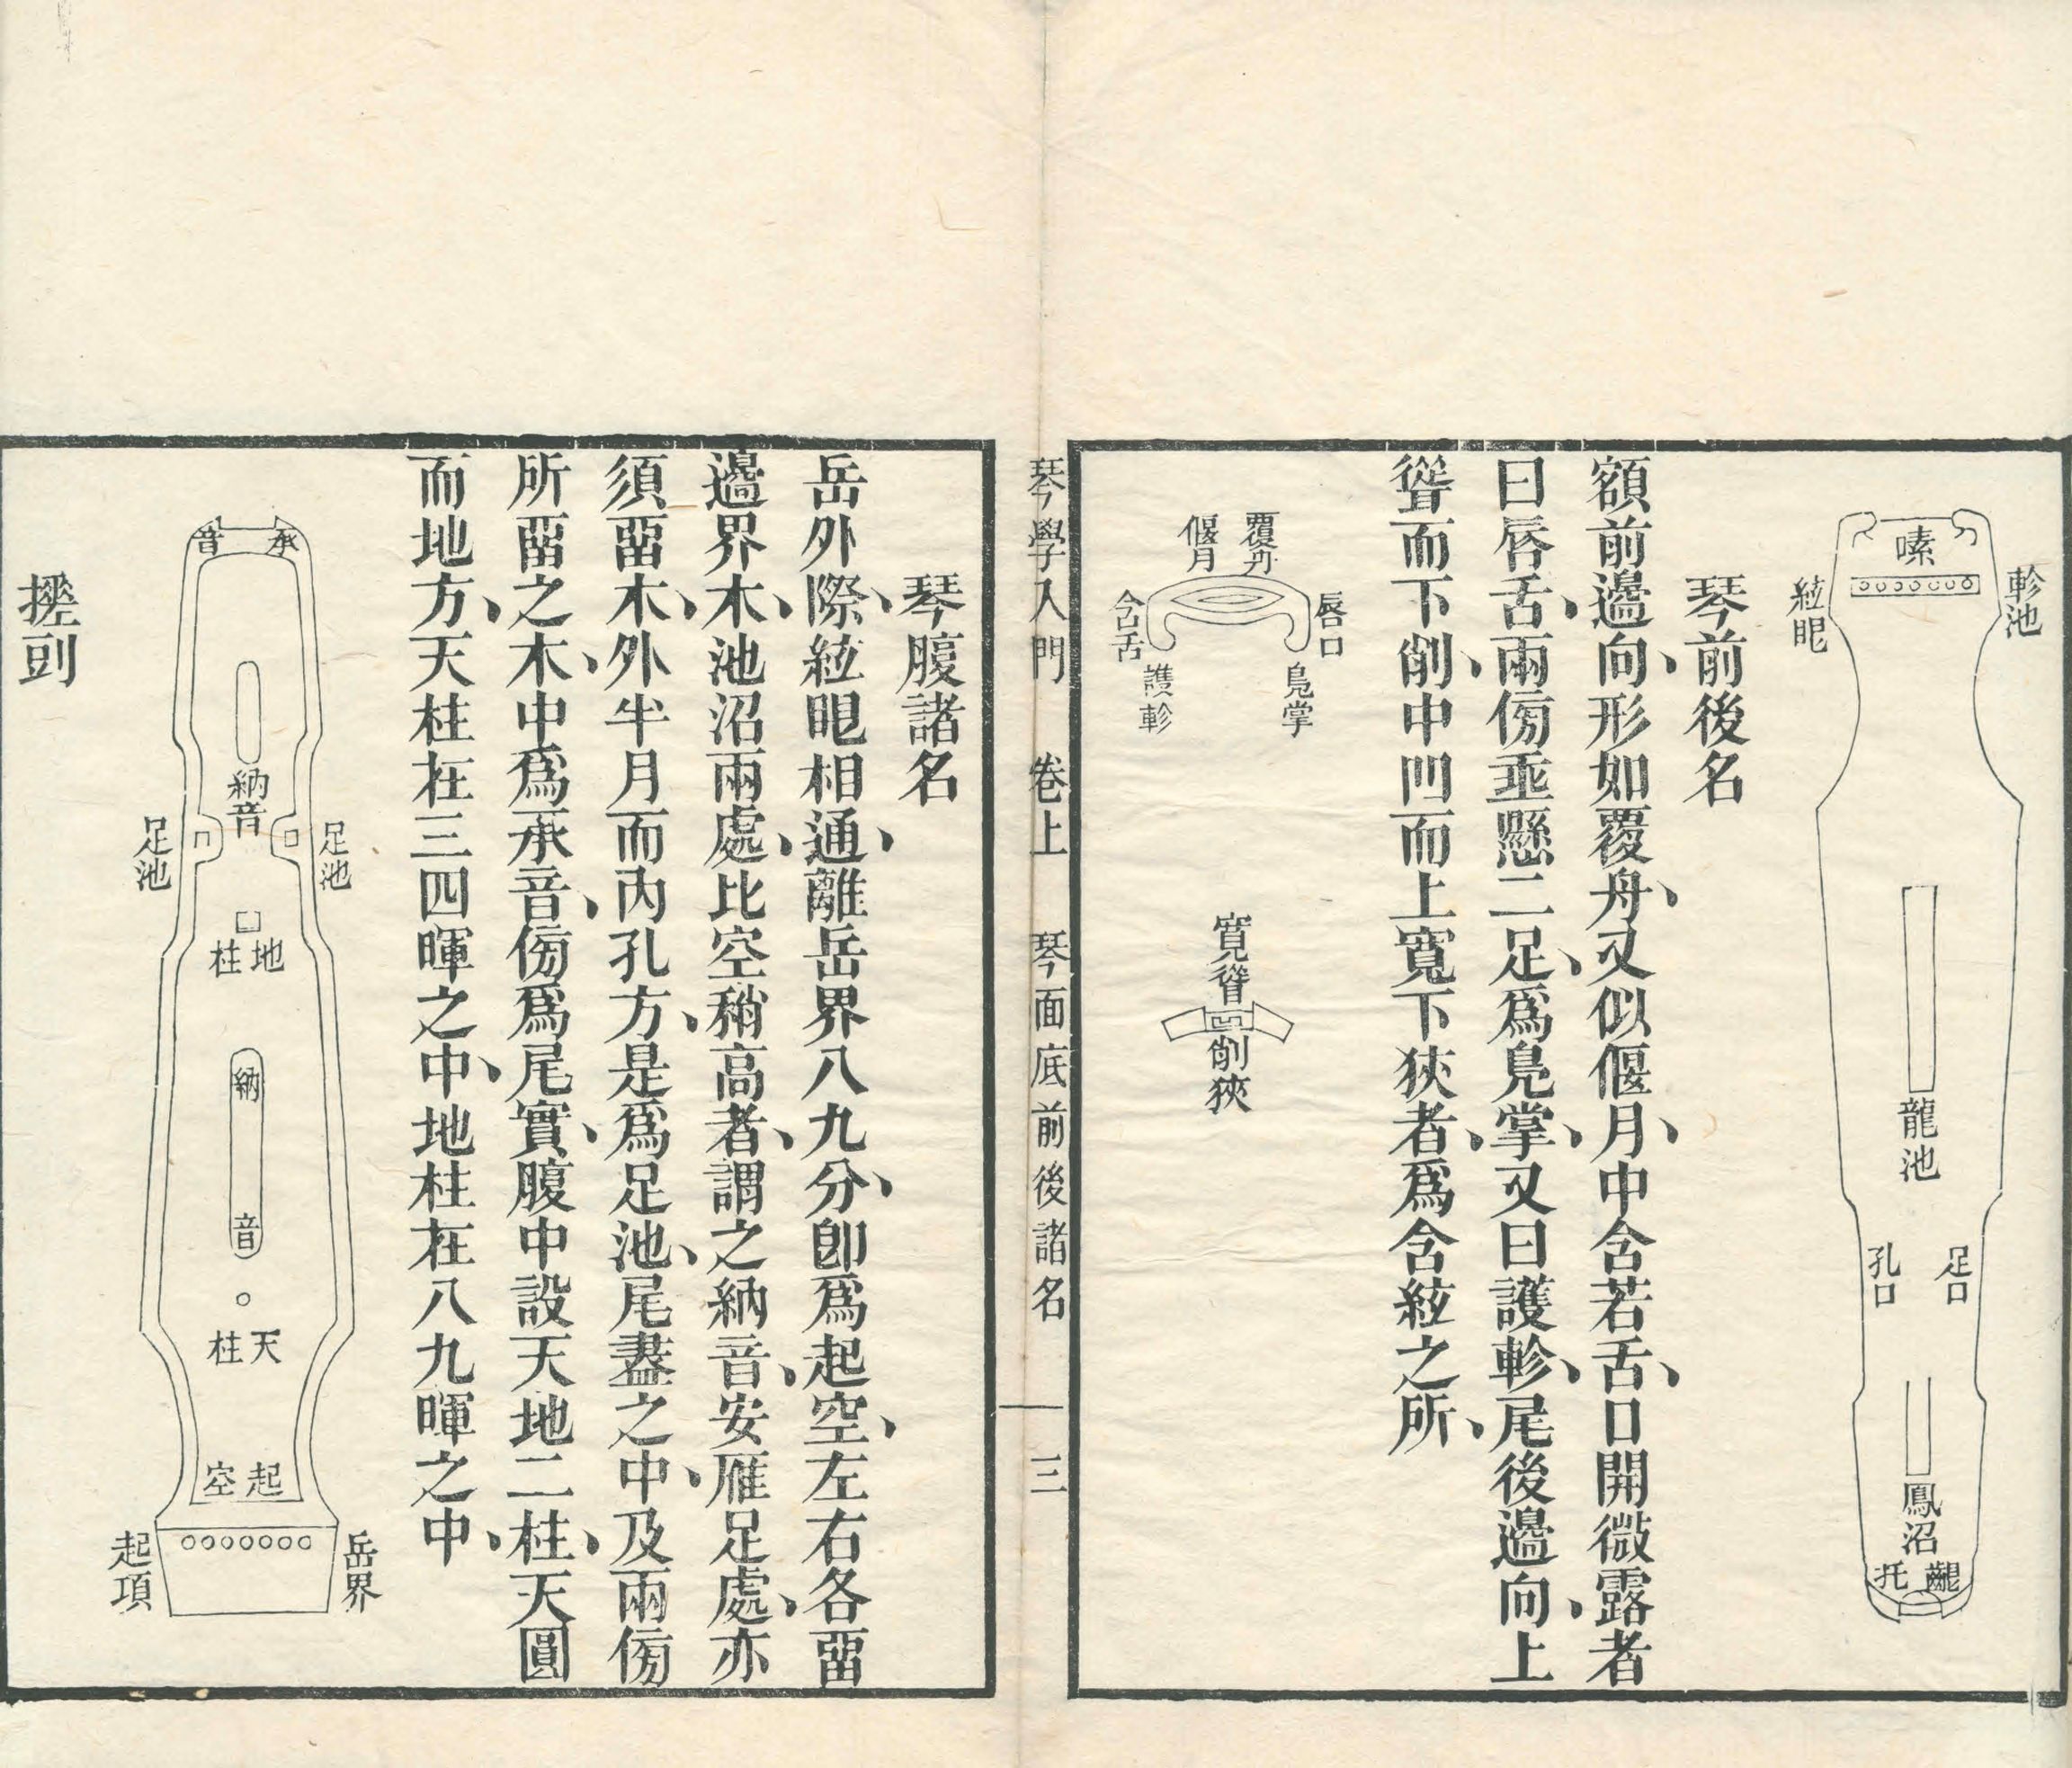 嗉
軫池
絃眼
龍池
足口
孔口
鳳沼
齦托
琴前後名
額前邊向形如覆舟又似偃月中含若舌口開微露者
曰唇舌兩傍垂懸二足爲鳧掌又曰護軫尾後邊向上
聳而下削中凹而上寬下狹者爲含絃之所
覆舟
偃月
唇口
含舌
鳧掌
護軫
寬聳
凹
削狹
琴學入門 卷上 琴面底前後諸名 三
琴腹諸名
岳外際絃眼相通離岳界八九分卽爲起空左右各畱
邊界木池沼兩處比空稍高者謂之納音安雁足處亦
須畱木外半月而內孔方是爲足池尾盡之中及兩傍
所畱之木中爲承音傍爲尾實腹中設天地二柱天圓
而地方天柱在三四暉之中地柱在八九暉之中
承音
納音
足池
足池
地柱
納音
天柱
起空
岳界
起項